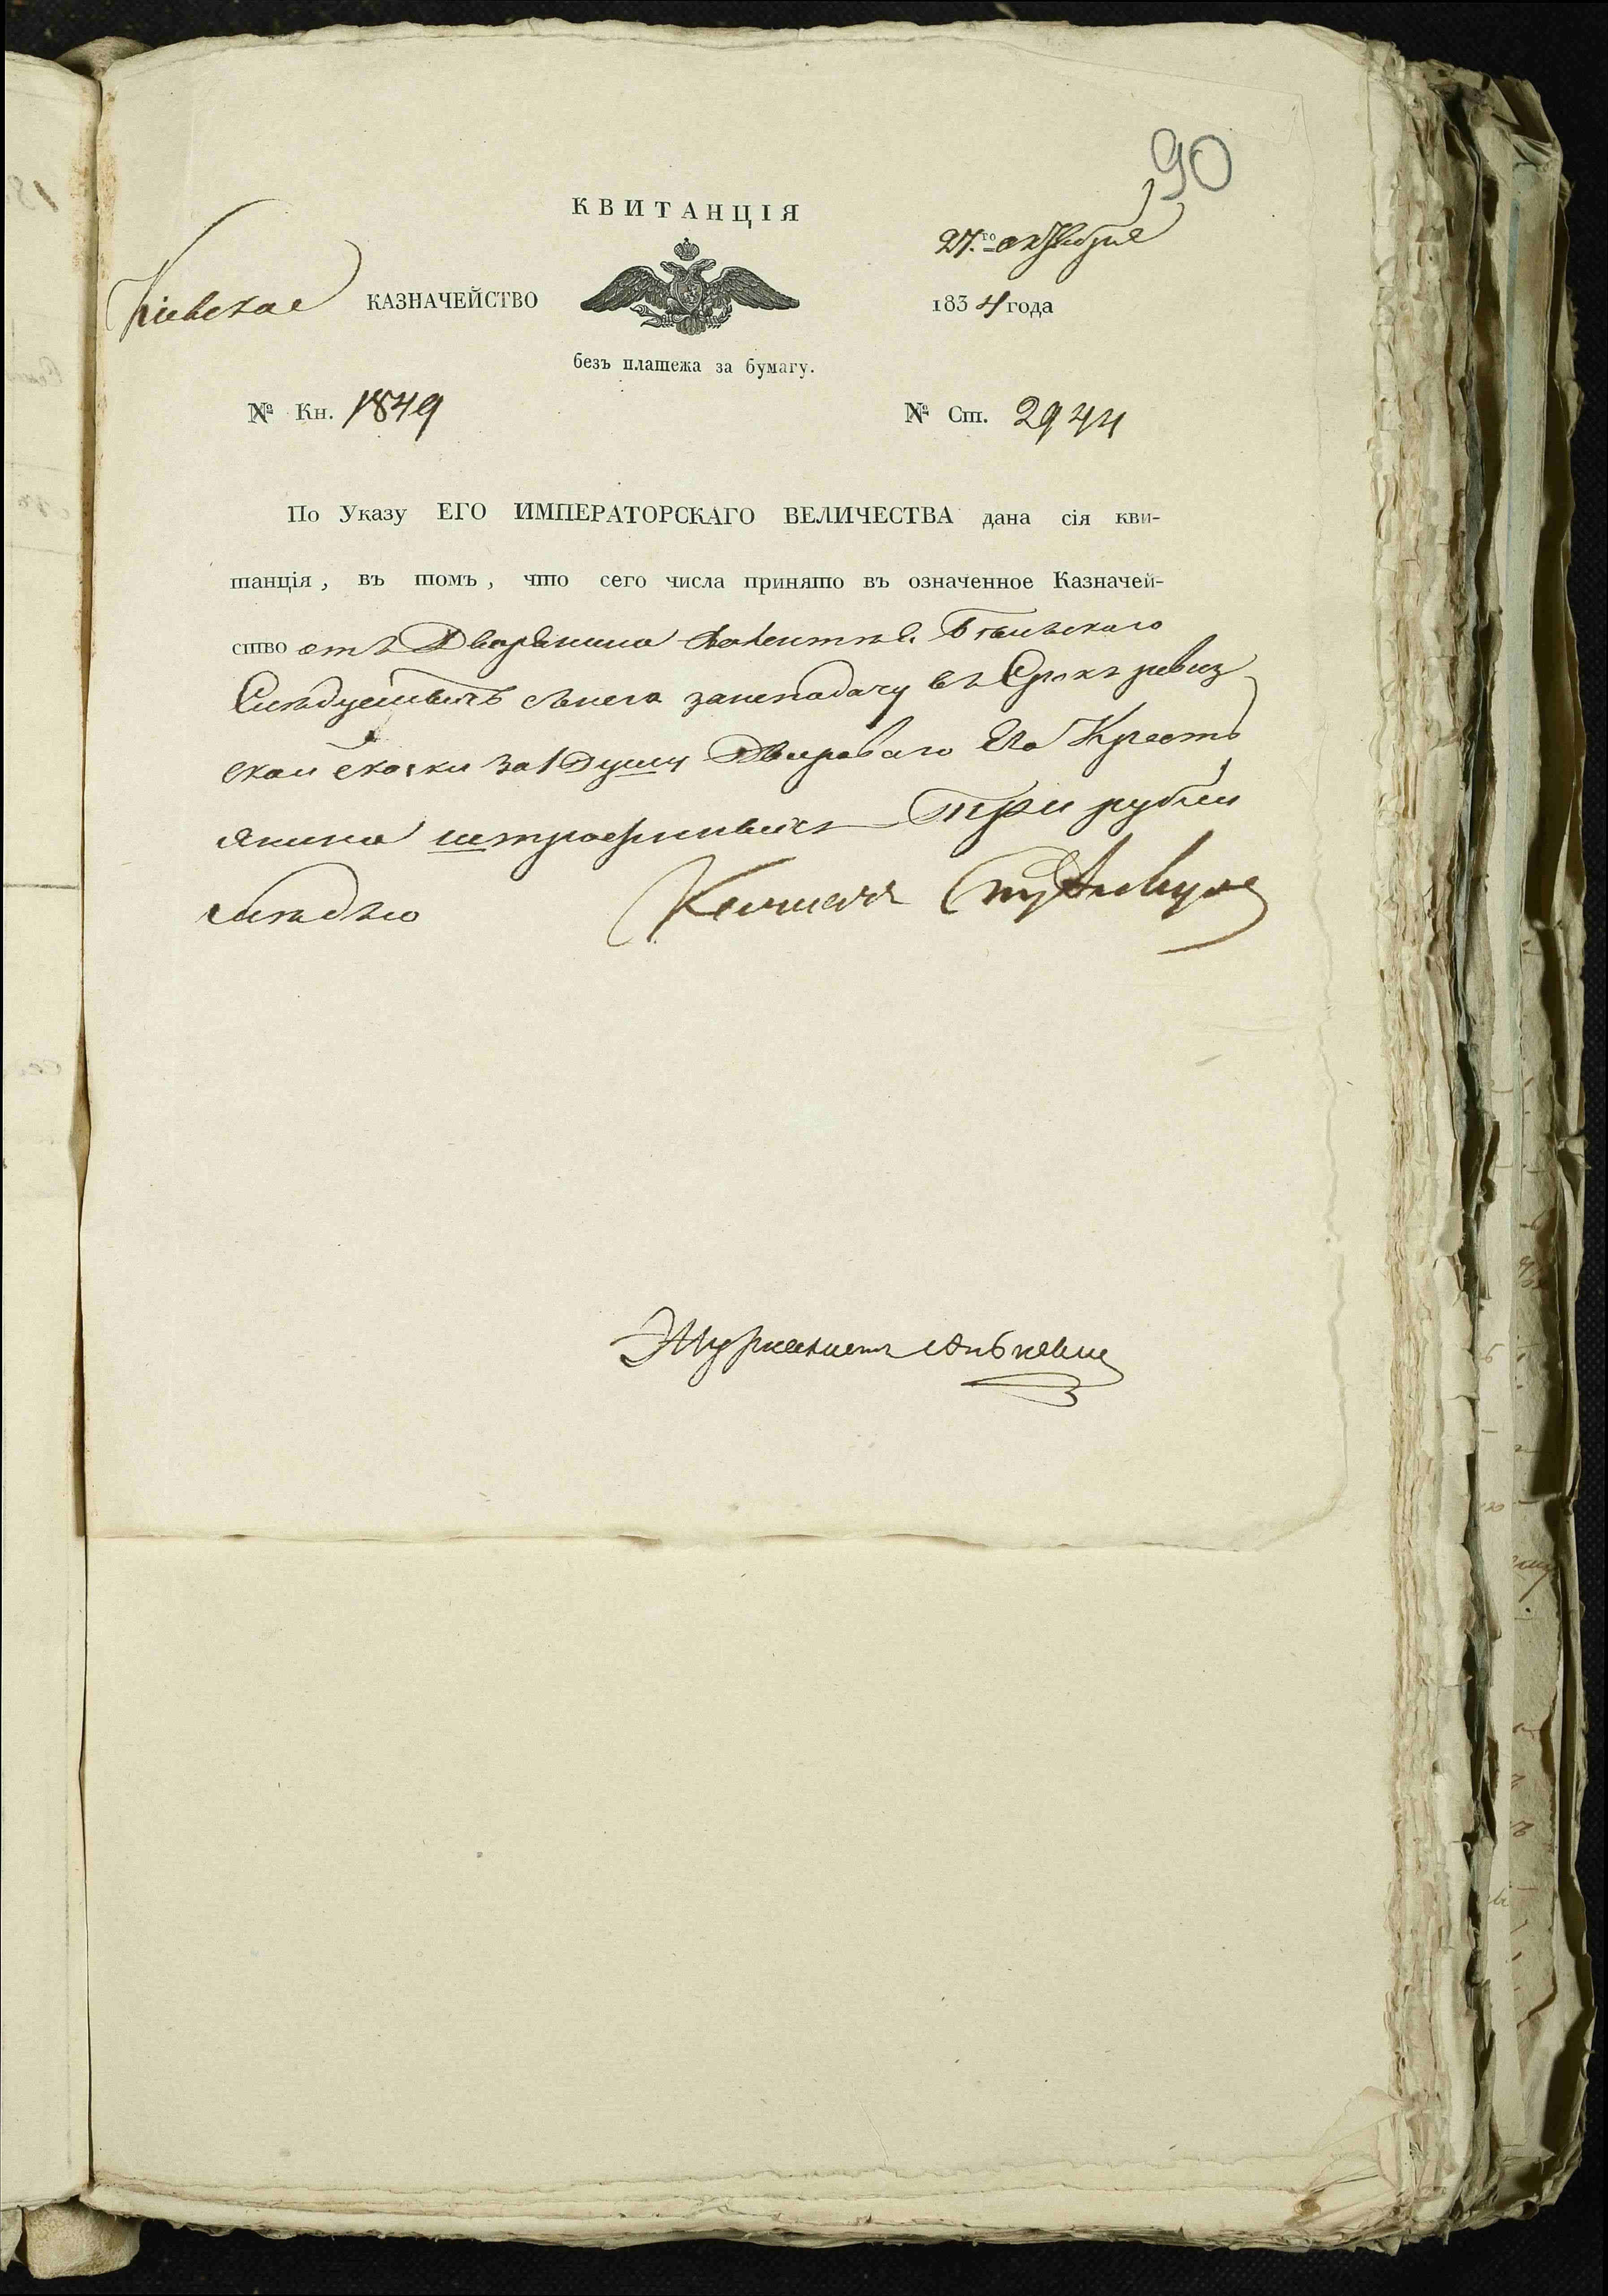 90
КВИТАНЦІЯ
27.го октября
Кіевское КАЗНАЧЕЙСТВО
1834 года
безъ платежа за бумагу.
№ Кн. 1849
№ Ст. 2944
По Указу ЕГО ИМПЕРАТОРСКАГО ВЕЛИЧЕСТВА дана сія кви-
танція, въ томъ, что сего числа принято въ означенное Казначей-
ство отъ Дворянина
Следуемыхъ снего занеподачу въ Срокъ ревиз
ской скаски за 1 Душу Двороваго Его Кресть
янина штрафныхъ три рубли
Казначей
Журналистъ